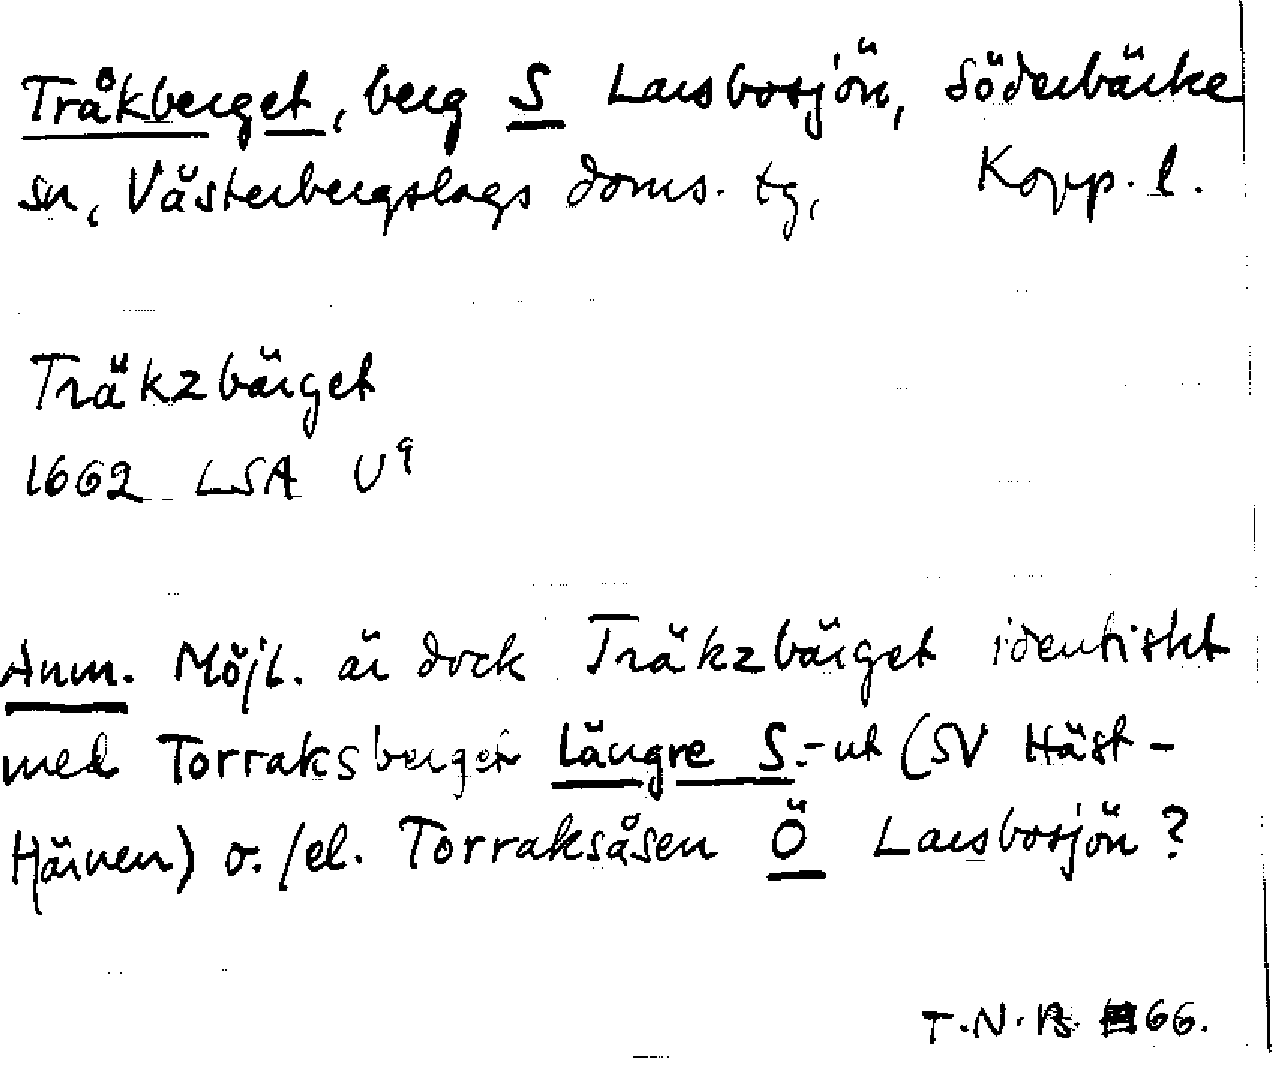 Tråkberget, berg S Larsbosjön, Söderbärke
sn, Västerbergslags doms. tg, Kopp. l.
Träkzbärget
1662 LSA U9
Anm. Möjl. är dock Träkzbärget identiskt
med Torraksberget längre S.-ut (SV Häst-
Härven) o./el. Torraksåsen Ö Larsbosjön?
T.N.B. 66.